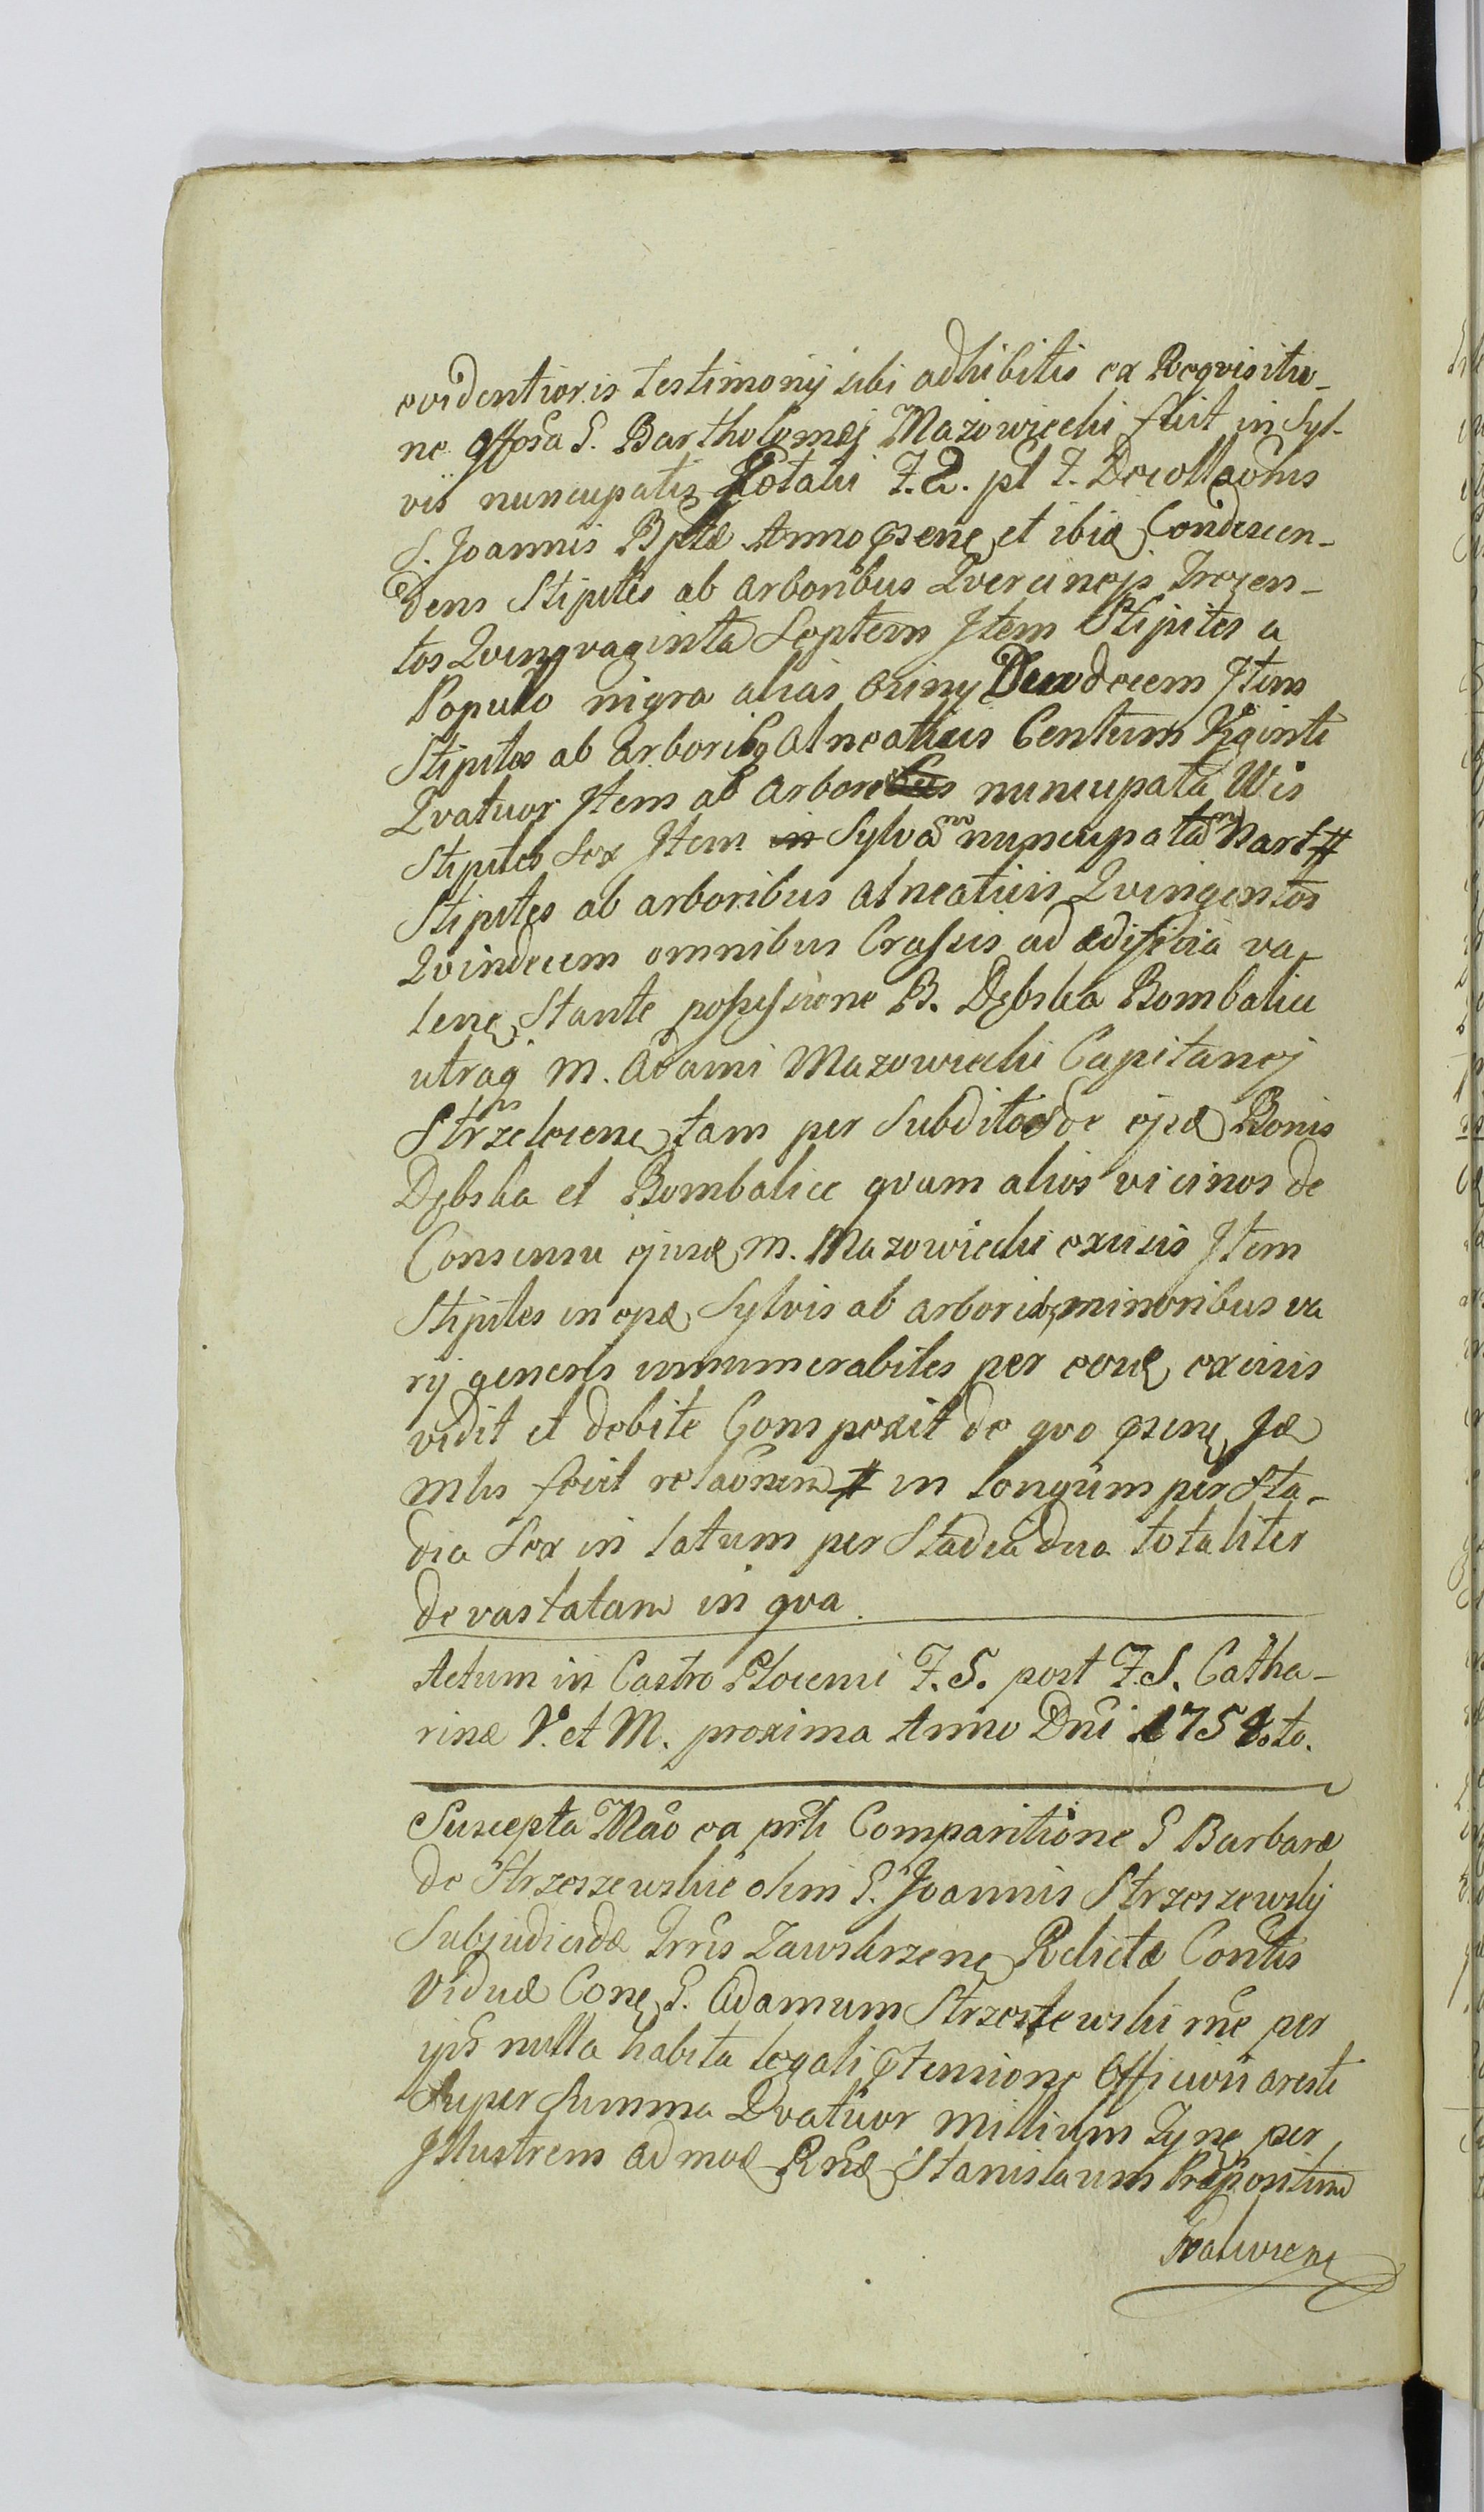 evidentioris testimonij sibi adhibitis ex Reqvisitio-
ne Gffõsa G. Bartholomæj Mazowiecki fuit in Syl-
vis nuncupatis Kotaki F. 2. pt F. Decollaõnis
S. Joannis Bptæ Anno præsene et ibid Condescen-
dens Stipites ab arboribus Qvercineis Trecen-
tos Qvinqvaginta Septem Item Stipites a
Populo nigra alias Osiny Duodecem Item
Stipites ab arboribq Alneaticis Centum Viginti
Qvatuor Item ab arbore nuncupata Wis
Stipites Sex Item Sylvam nuncupatam Nart #
Stipites ab arboribus alneaticis Qvingentos
Qvindecem omnibus Crassis ad ædificia va-
lene Stante possessione B. Dębska Bombalice
utraq M. Adami Mazowiecki Capitanej
Strzelcene tam per Subditos de ejsd Bonis
Dębska et Bombalice qvam alios vicinos de
Consensu ejusd M. Mazowiecki excisis Item
Stipites in ejsd Sylvis ab arboribq minoribus va
rij generis innumerabiles per eosd excisis
vidit et debite Comperit de qvo præsene Jd
Mlis fecit relaõnem # in longum per Sta-
dia Sex in latum per Stadia duo totaliter
devastatam in qva
Actum in Castro Plocensi F. 5. post F. S. Catha-
rinæ V. et M. proxima Anno Dni 1754to.
Suscepta Mão ea prli Comparitione G Barbaræ
de Strzeszewskie olim G. Joannis Strzeszewskj
Subjudicidæ Trris Zawskrzene Relictæ Contlis
Viduæ Cone G. Adamum Strzeszewski rne per
ips nulla habita legali prætensione Officiosi aresti
Super Summa Qvatuor millium Tyne per
Illustrem admod Rnd Stanislaum Præpositum